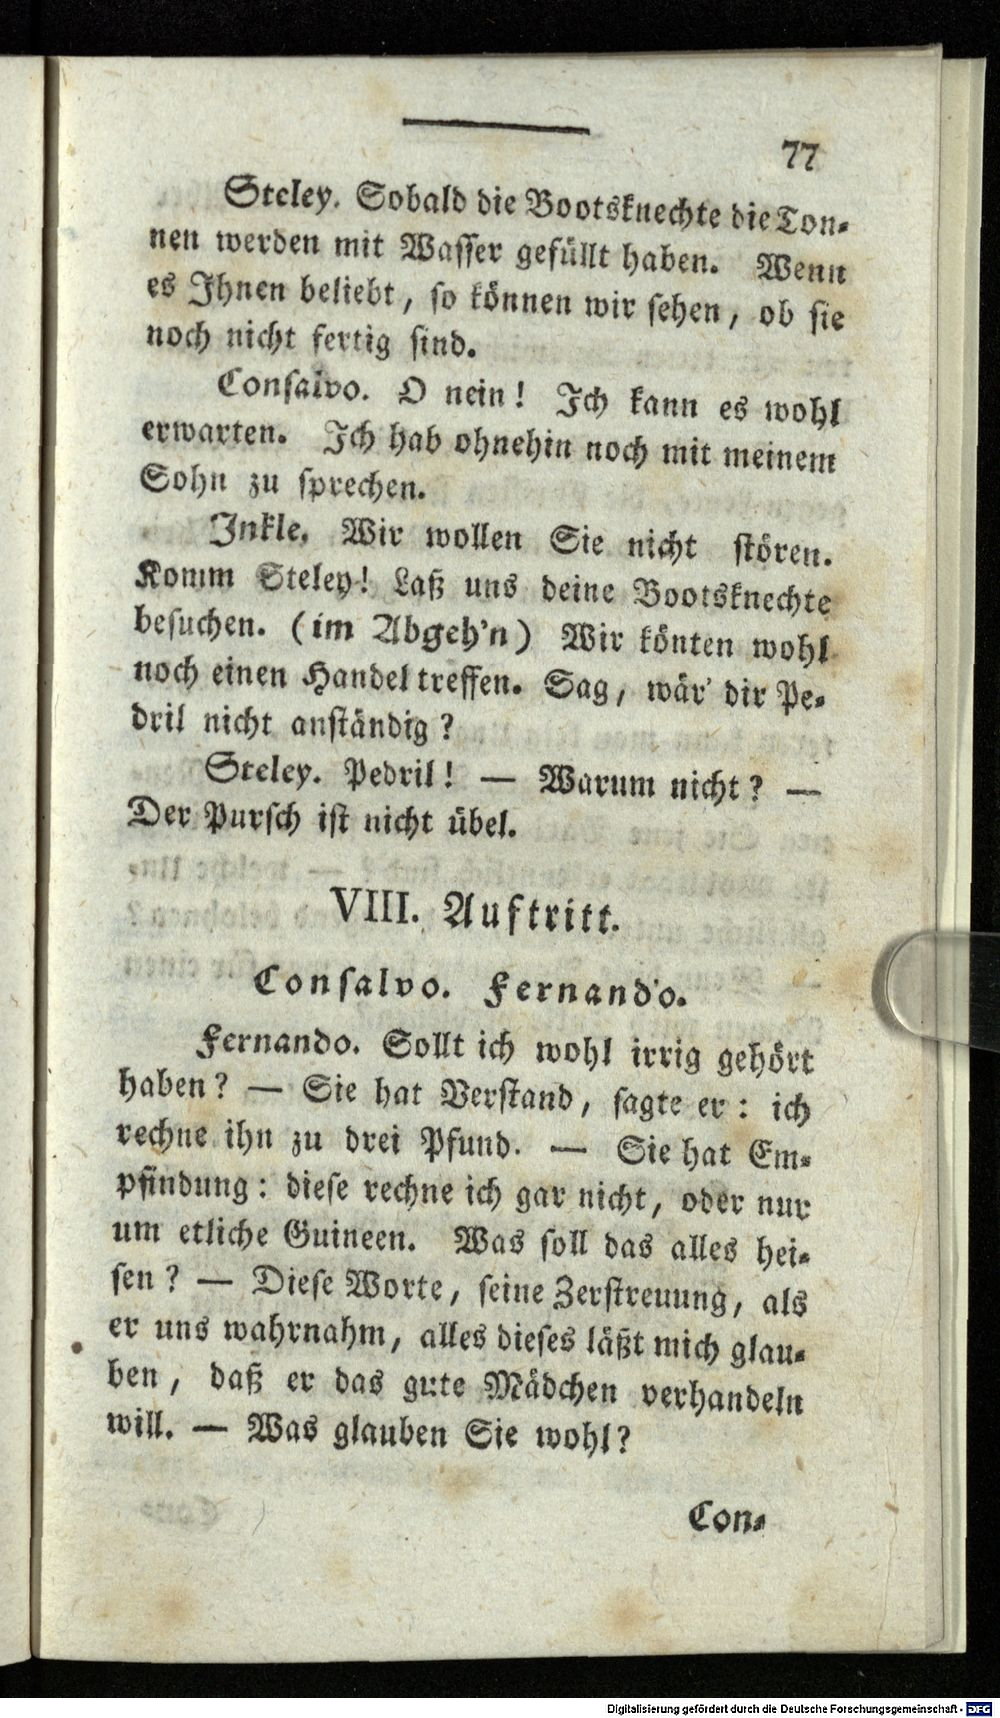 77
Steley. Sobald die Bootsknechte die Ton-
nen werden mit Wasser gefüllt haben. Wenn
es Ihnen beliebt, so können wir sehen, ob sie
noch nicht fertig sind.
Consalvo. O nein! Ich kann es wohl
erwarten. Ich hab ohnehin noch mit meinem
Sohn zu sprechen.
Inkle. Wir wollen Sie nicht stören.
Komm Steley! Laß uns deine Bootsknechte
besuchen. (im Abgeh'n) Wir könten wohl
noch einen Handel treffen. Sag, wär' dir Pe-
dril nicht anständig?
Steley. Pedril! — Warum nicht? —
Der Pursch ist nicht übel.
VIII. Auftritt.
Consalvo. Fernando.
Fernando. Sollt ich wohl irrig gehört
haben? — Sie hat Verstand, sagte er: ich
rechne ihn zu drei Pfund. — Sie hat Em-
pfindung: diese rechne ich gar nicht, oder nur
um etliche Guineen. Was soll das alles hei-
sen? — Diese Worte, seine Zerstreuung, als
er uns wahrnahm, alles dieses läßt mich glau-
ben, daß er das gute Mädchen verhandeln
will. — Was glauben Sie wohl?
Con-
Digitalisierung gefördert durch die Deutsche Forschungsgemeinschaft - DFG